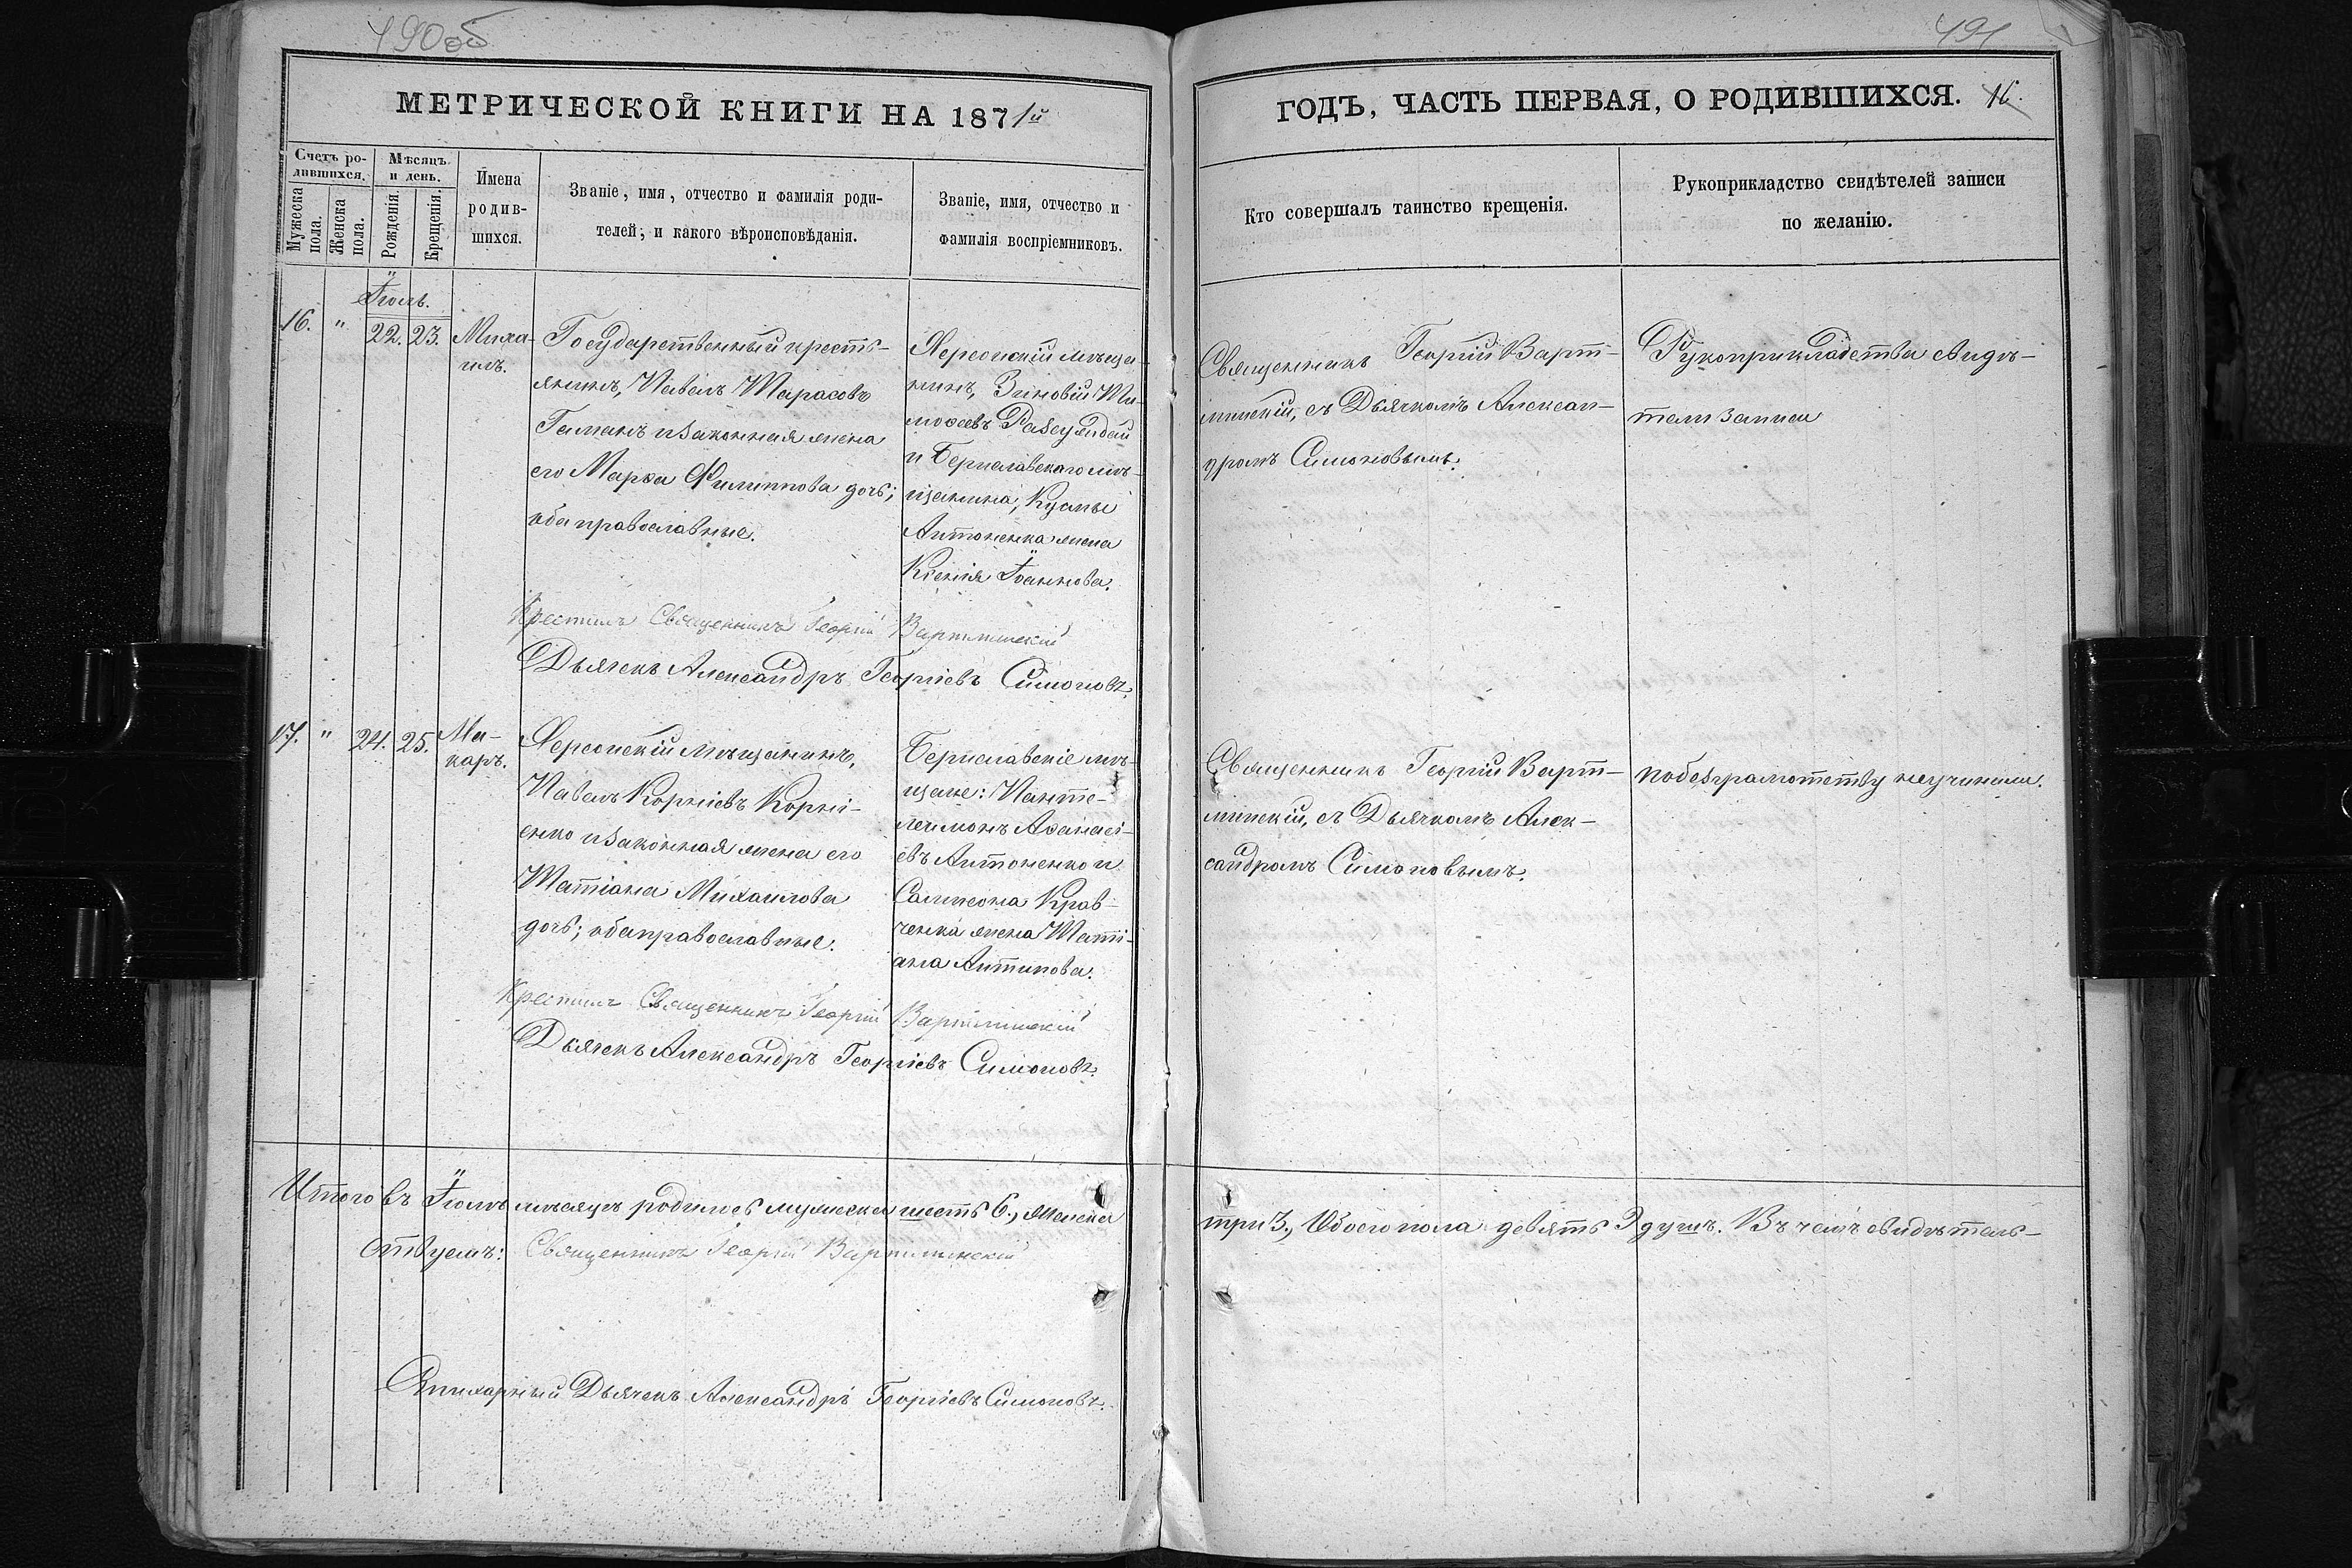 490об
491
МЕТРИЧЕСКОЙ КНИГИ НА 1871й
Счетъ ро-
дившихся.
Мужеска
пола.
Женска
пола.
Мѣсяцъ
и день.
Рожденія.
Крещенія.
Имена
родив-
шихся.
Званіе, имя, отчество и фамилія роди-
телей, и какого вѣроисповѣданія.
Званіе, имя, отчество и
фамилія воспріемниковъ.
Іюль.
16. " 22. 23.
Миха-
илъ.
Государственный кресть-
янинъ, Павелъ Тарасовъ
Гаманъ и законная жена
его Марѳа Филиппова дочь;
оба православные.
Херсонскій мѣща-
нинъ, Зиновій Ти-
моѳеевъ
и Бериславскаго мѣ-
щанина, Кузмы
Антоненка жена
Ксенія Іоаннова.
Крестилъ Священникъ Георгій Вартминскій
Дьячекъ Александръ Георгіевъ Симоновъ.
17. " 24. 25.
Ма-
каръ.
Херсонскій мѣщанинъ,
Павелъ Корніевъ Корні-
енко и законная жена его
Татіана Михаилова
дочь; оба православные.
Бериславскіе мѣ-
щане: Панте-
леимонъ Аѳанасі-
евъ Антоненко и
Сампсона Крав-
ченка жена Таті-
ана Антипова.
Крестилъ Священникъ Георгій Вартминскій
Дьячекъ Александръ Георгіевъ Симоновъ.
Итого въ Іюлѣ мѣсяцѣ родилось мужеска шесть 6., женска
ствуемъ: Священникъ Георгій Вартминскій
Стихарный Дьячекъ Александръ Георгіевъ Симоновъ.
ГОДЪ, ЧАСТЬ ПЕРВАЯ, О РОДИВШИХСЯ. 16.
Кто совершалъ таинство крещенія.
Рукоприкладство свидѣтелей записи
по желанію.
Священникъ Георгій Варт-
минскій, съ Дьячкомъ Алексан-
дромъ Симоновымъ.
Рукоприкладства свидѣ-
тели записи
Священникъ Георгій Варт-
минскій, съ Дьячкомъ Алек-
сандромъ Симоновымъ.
по безграмотству неучинили.
три 3., Обоего пола девять 9 душъ. Въ чемъ свидѣтель-